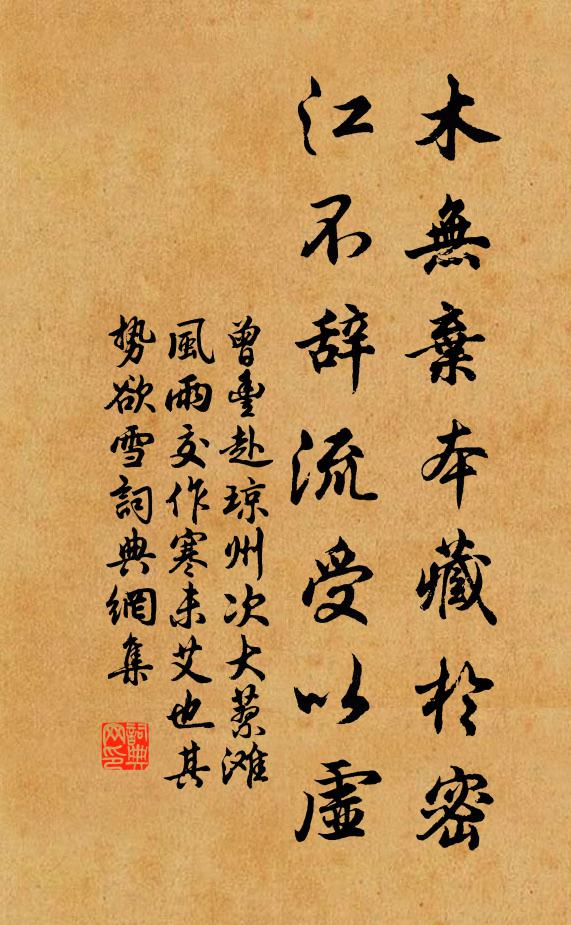 木無棄本藏於密
江不辞流受以虛
曾豊赴琼州次大蔡滩
風雨交作寒未艾也其
势欲雪詞典網集
詞典
网印